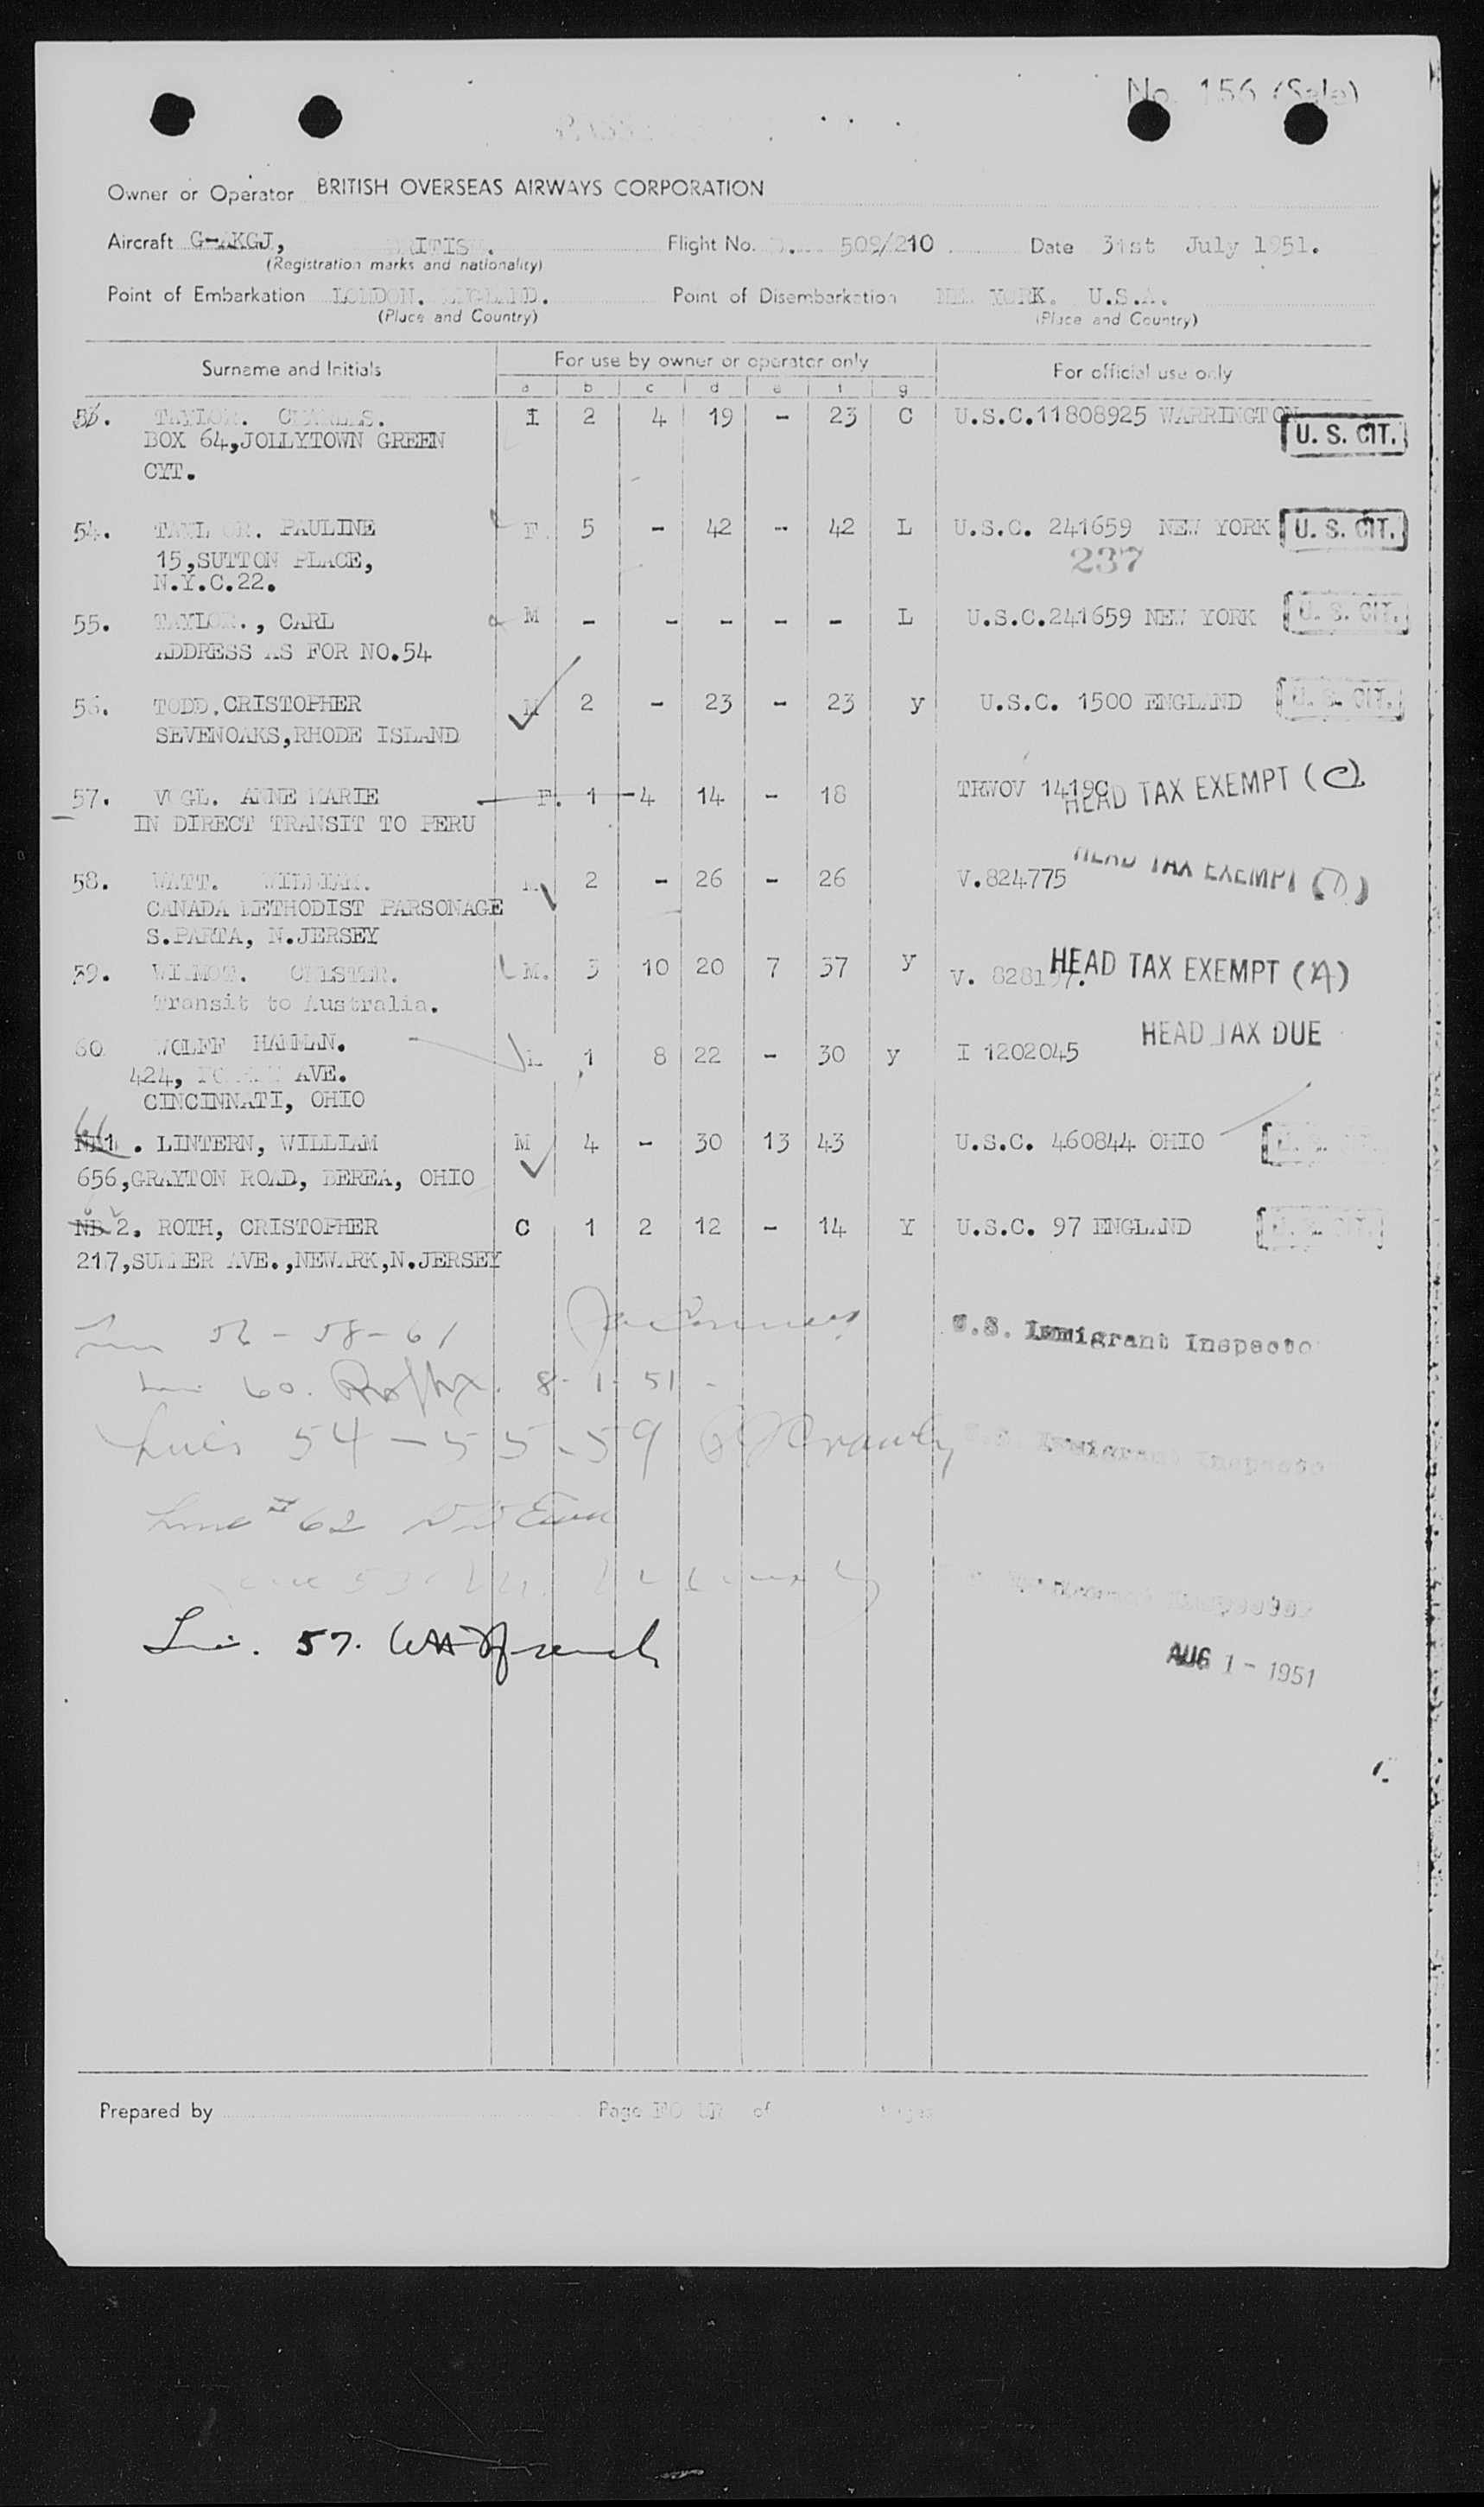 No. 156 (Sale)
Owner or Operator BRITISH OVERSEAS AIRWAYS CORPORATION
Aircraft G-AKGJ, Flight No. 509/210 Date 31st July 1951.
(Registration marks and nationality)
Point of Embarkation LONDON. ENGLAND. Point of Disembarkation NEW YORK. U.S.A.
(Place and Country) (Place and Country)
Surname and Initials For use by owner or operator only For official use only
a b c d e f g
53. TAYLOR. CHARLES. I 2 4 19 - 23 C U.S.C.11808925 WARRINGTON U. S. CIT.
BOX 64,JOLLYTOWN GREEN
CYT.
54. TAYLOR. PAULINE F. 5 - 42 - 42 L U.S.C. 241659 NEW YORK U. S. CIT.
15,SUTTON PLACE, 237
N.Y.C.22.
55. TAYLOR., CARL M - - - - - L U.S.C.241659 NEW YORK U. S. CIT.
ADDRESS AS FOR NO.54
56. TODD.CRISTOPHER M 2 - 23 - 23 y U.S.C. 1500 ENGLAND U. S. CIT.
SEVENOAKS,RHODE ISLAND
57. VOGL. ANNE MARIE F. 1 4 14 - 18 TRWOV 1419C HEAD TAX EXEMPT (C)
IN DIRECT TRANSIT TO PERU
58. WATT. WILLIAM. 2 - 26 - 26 V.824775 HEAD TAX EXEMPT (D)
CANADA METHODIST PARSONAGE
S.PARTA, N.JERSEY
59. WILMOT. CHESTER. M. 3 10 20 7 37 y V. 828197. HEAD TAX EXEMPT (A)
Transit to Australia.
60 WOLFF HANMAN. 1 8 22 - 30 y I 1202045 HEAD TAX DUE
424, AVE.
CINCINNATI, OHIO
61 . LINTERN, WILLIAM M 4 - 30 13 43 U.S.C. 460844 OHIO
656,GRAYTON ROAD, BEREA, OHIO
NB 2. ROTH, CRISTOPHER C 1 2 12 - 14 Y U.S.C. 97 ENGLAND
217,SUMMER AVE.,NEWARK,N.JERSEY
56 - 58 - 61 U.S. Immigrant Inspecto
60. 8-1-51
Lines 54 - 55 - 59 Immigrant Inspecto
Line # 62
57.
AUG 1 - 1951
Prepared by Page FOUR of